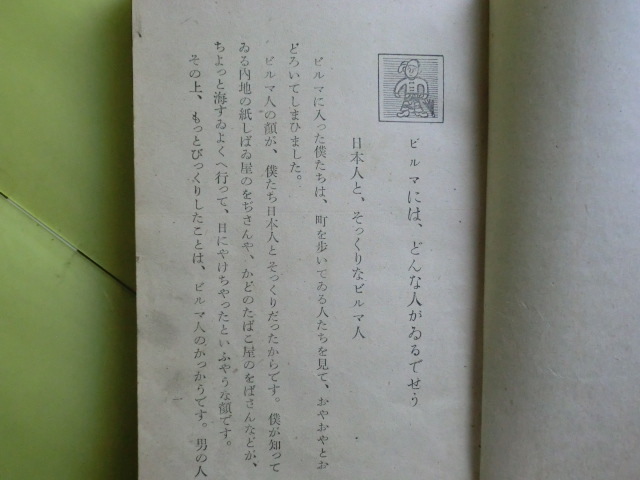 ビルマには、どんな人がゐるでせう
日本人と、そっくりなビルマ人
ビルマに入った僕たちは、町を歩いてゐる人たちを見て、おやおやとお
どろいてしまひました。
ビルマ人の顔が、僕たち日本人とそっくりだったからです。僕が知って
ゐる内地の紙しばゐ屋のをぢさんや、かどのたばこ屋のをばさんなどが、
ちよっと海すゐよくへ行って、日にやけちやったといふやうな顔です。
その上、もっとびっくりしたことは、ビルマ人のかっかうです。男の人